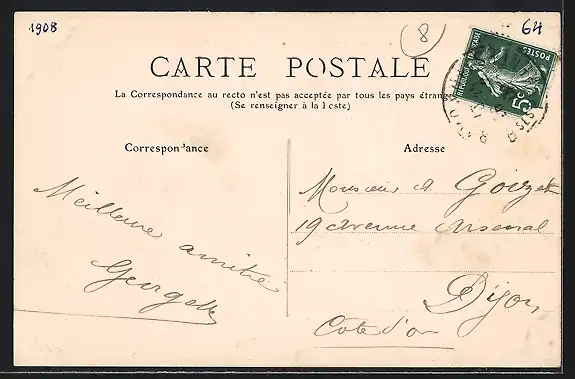 1908
8
64
CARTE POSTALE
La Correspondance au recto n'est pas acceptée par tous les pays étrang
(Se renseigner à la Poste)
POSTES
5c
Correspondance
Adresse
Meilleure amitié
Georgette
Monsieur A. Goizet
19 Avenue Arsenal
Dijon
Cote d'or